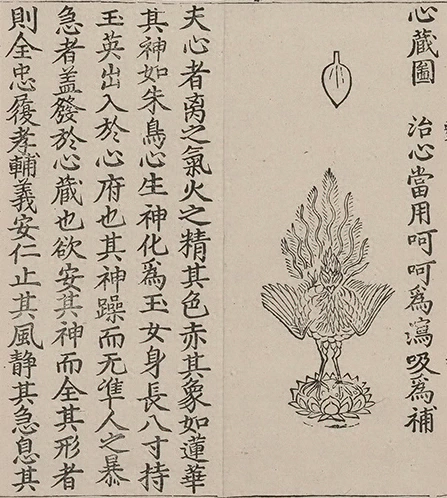 心藏圖　治心當用呵呵為瀉吸為補
夫心者离之氣火之精其色赤其象如蓮華
其神如朱鳥心生神化為玉女身長八寸持
玉英出入於心府也其神躁而无準人之暴
急者盖發於心藏也欲安其神而全其形者
則全忠履孝輔義安仁止其風静其急息其